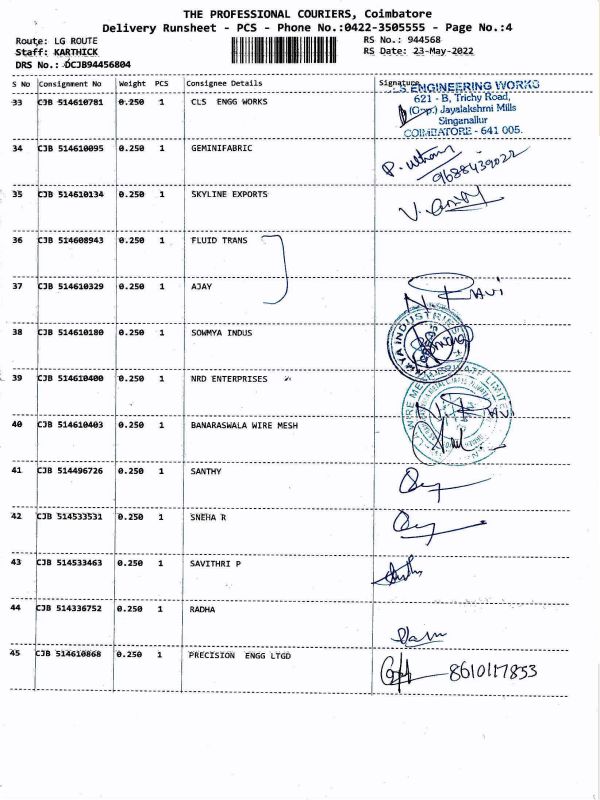 THE PROFESSIONAL COURIERS, Coimbatore
Delivery Runsheet - PCS - Phone No.:0422-3505555 - Page No.:4
Route: LG ROUTE RS No.: 944568
Staff: KARTHICK RS Date: 23-May-2022
DRS No.: DCJB94456804
S No Consignment No Weight PCS Consignee Details Signature
33 CJB 514610781 0.250 1 CLS ENGG WORKS
LS ENGINEERING WORKS
621 - B, Trichy Road,
(Opp.) Jayalakshmi Mills
Singanallur
COIMBATORE - 641 005.
34 CJB 514610095 0.250 1 GEMINIFABRIC
9688439022
35 CJB 514610134 0.250 1 SKYLINE EXPORTS
36 CJB 514608943 0.250 1 FLUID TRANS
37 CJB 514610329 0.250 1 AJAY
N RAVI
38 CJB 514610180 0.250 1 SOWMYA INDUS
39 CJB 514610400 0.250 1 NRD ENTERPRISES
N. RAVI
40 CJB 514610403 0.250 1 BANARASWALA WIRE MESH
41 CJB 514496726 0.250 1 SANTHY
42 CJB 514533531 0.250 1 SNEHA R
43 CJB 514533463 0.250 1 SAVITHRI P
44 CJB 514336752 0.250 1 RADHA
45 CJB 514610868 0.250 1 PRECISION ENGG LTGD
8610117853